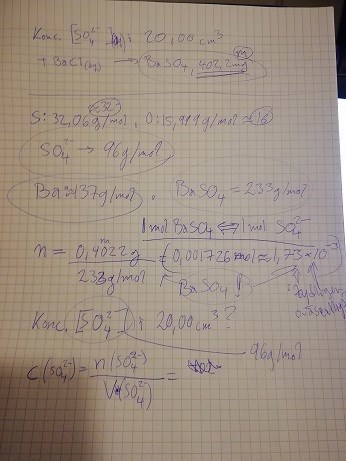 Konc. [SO₄²⁻] i 20,00 cm³
+ BaCl(aq) → BaSO₄, 402,2 mg
m
≈32
S: 32,06 g/mol, O: 15,999 g/mol ≈ 16
SO₄²⁻ → 96 g/mol
Ba ≈ 137 g/mol, BaSO₄ = 233 g/mol
1 mol BaSO₄ ⇔ 1 mol SO₄²⁻
n = 0,4022 g / 233 g/mol = 0,001726 mol ≈ 1,73 × 10⁻³
m
BaSO₄
Konc. [SO₄²⁻] i 20,00 cm³?
96 g/mol
c(SO₄²⁻) = n(SO₄²⁻) / V(SO₄²⁻) =